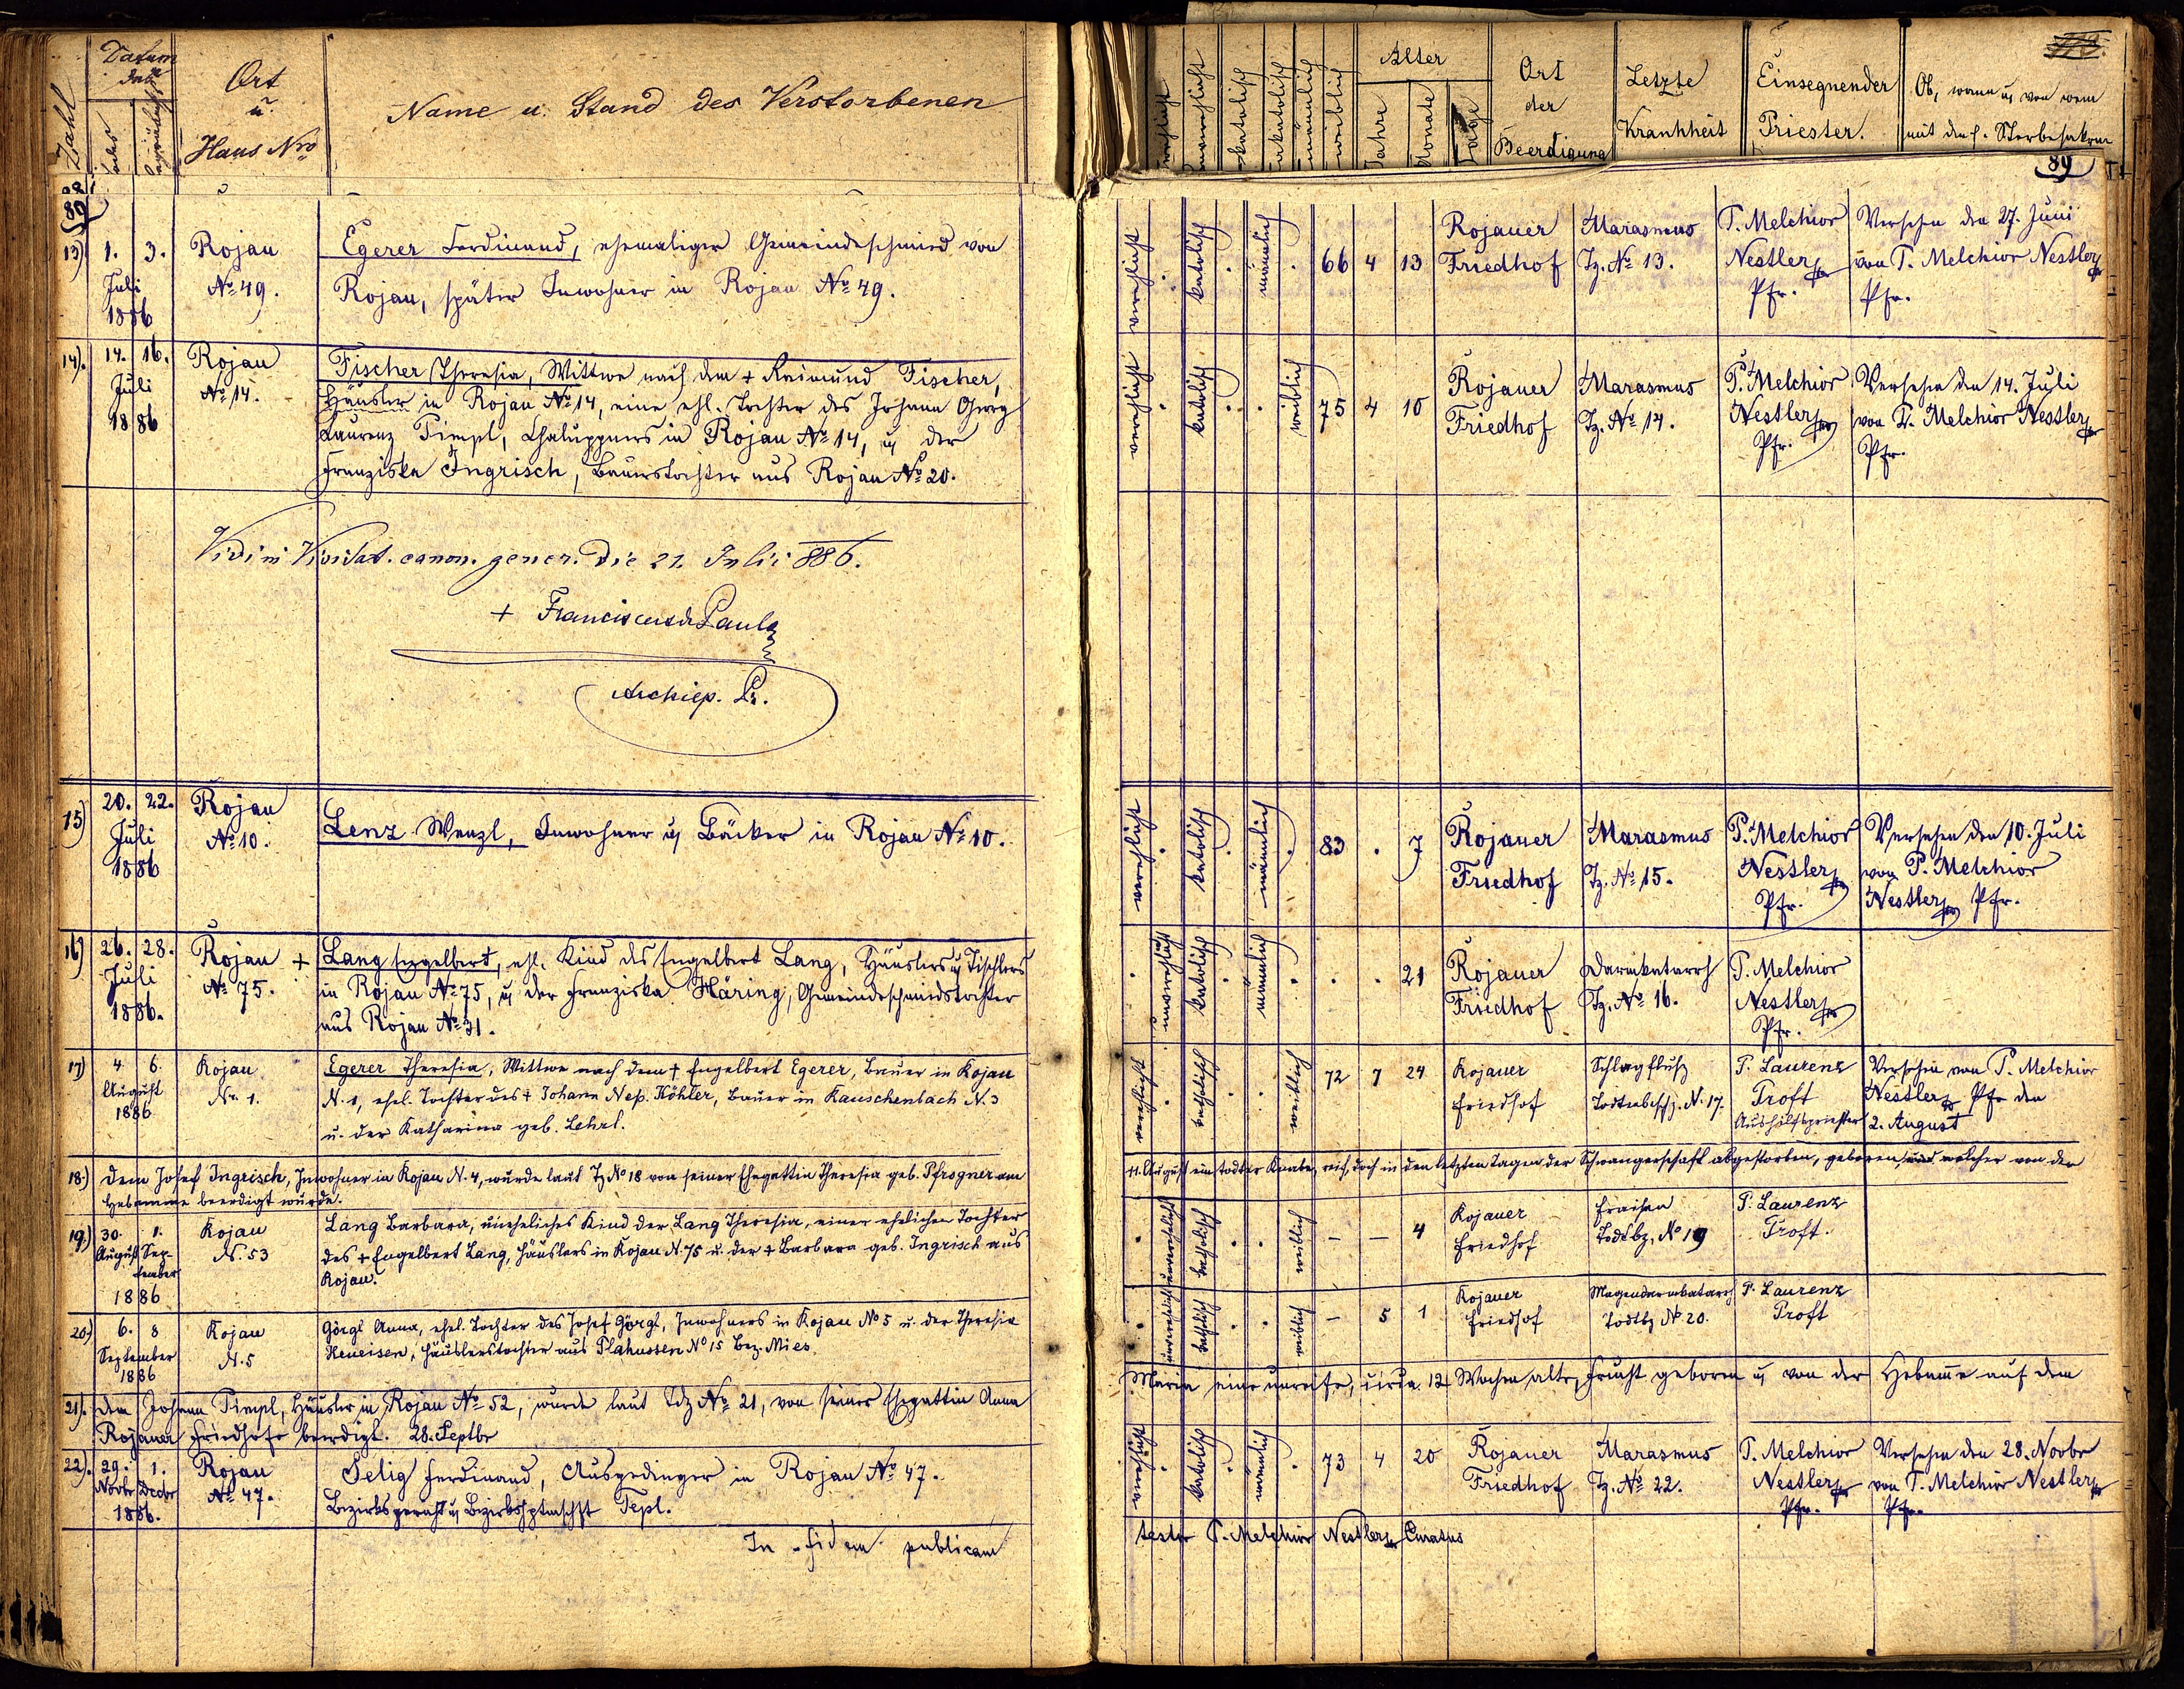 Zahl
Datum
des
Todes
Begräbnißes
Ort
u.
Haus Nro
Name u. Stand des Verstorbenen
verehlicht
unverehlicht
katolisch
akatolisch
männlich
weiblich
Alter
Jahre
Monate
Tage
Ort
der
Beerdigung
Letzte
Krankheit
Einsegnender
Priester.
Ob, wann u von wem
mit den h. Sterbesakrm
89
89
13) 1. 3. Rojau Egerer Ferdinand, ehemaliger Gemeindeschmied von
Juli No 49. Rojau, später Inwohner in Rojau No 49.
1886
verehlicht . katolisch . männlich . 66 4 13 Rojauer Marasmus P. Melchior Versehn den 27. Juni
Friedhof Tz. No 13. Nestler von P. Melchior Nestler
Pfr. Pfr.
14). 14. 16. Rojau Fischer Theresia, Wittwe nach dem + Raimund Fischer,
Juli No 14. Häusler in Rojau No 14, eine ehl. Tochter des Johann Georg
1886 Laurenz Timpl, Chaluppners in Rojau No 14, u der
Franziska Ingrisch, Bauerstochter aus Rojau No 20.
verehlicht . katolisch . . weiblich 75 4 10 Rojauer Marasmus P. Melchior Versehen den 14. Juli
Friedhof Tz. No 14. Nestler von P. Melchior Nestler
Pfr. Pfr.
Vidi in Visitat. canon. gener. die 21. Julii 886.
+ Franciscus de Paula
Archiep. Pr.
15) 20. 22. Rojau Lenz Wenzl, Inwohner u Bäcker in Rojau No 10.
Juli No 10.
1886
verehlicht . katolisch . männlich . 83 . 7 Rojauer Marasmus P. Melchior Versehen den 10. Juli
Friedhof Tz. No 15. Nestler von P. Melchior
Pfr. Nestler Pfr.
16) 26. 28. Rojau + Lang Engelbert, ehl. Kind des Engelbert Lang, Häuslers u Tischlers
Juli No 75. in Rojau No 75, u der Franziska Häring, Gemeindeschmiedstochter
1886. aus Rojau No 31.
. unverehlicht katolisch . männlich . . . 21 Rojauer Darmkatarrh P. Melchior
Friedhof Tz. No 16. Nestler
Pfr.
17) 4. 6. Rojau Egerer Theresia, Wittwe nach dem + Engelbert Egerer, Bauer in Rojau
August Nr. 1. N. 1, ehel. Tochter des + Johann Nep. Köhler, Bauer in Rauschenbach N. 3
1886 u. der Katharina geb. Lehrl.
verehlicht . katholisch . . weiblich 72 7 24 Rojauer Schlagfluß P. Laurenz Versehen von P. Melchior
Friedhof Todtenbesch. N. 17. Proft Nestler Pfr den
Aushilfspriester 2. August
18.) Dem Josef Ingrisch, Inwohner in Rojau N. 4, wurde laut Tz No 18 von seiner Ehegattin Theresia geb. Pfrogner am
11. August ein todter Knabe, reif, doch in den letzten Tagen der Schwangerschaft abgestorben, geboren, welcher von der
Hebamme beerdigt wurde.
19.) 30. 1. Rojau Lang Barbara, uneheliches Kind der Lang Theresia, einer ehelichen Tochter
August Sep- N. 53 des + Engelbert Lang, Häuslers in Rojau N. 75 u. der + Barbara geb. Ingrisch aus
tember Rojau.
1886
. unverehelicht katholisch . . weiblich – – 4 Rojauer Fraisen P. Laurenz
Friedhof Todtbz. No 19 Proft.
20.) 6. 8 Rojau Görgl Anna, ehel. Tochter des Josef Görgl, Inwohners in Rojau No 5 u. der Theresia
September N. 5 Heueisen, Häuslerstochter aus Plahussen No 15 Bez. Mies
1886
. unverehelicht katholisch . . weiblich – 5 1 Rojauer Magendarmkatarrh P. Laurenz
Friedhof Todtbz N. 20. Proft
21). Dem Johann Timpl, Häusler in Rojau No 52, wurde laut Tdz No 21, von seiner Ehegattin Anna
Maria eine unreife, circa 12 Wochen alte, Frucht geboren u von der Hebame auf dem
Rojauer Friedhofe beerdigt. 28. Septbr
22). 29. 1. Rojau Selig Ferdinand, Ausgedinger in Rojau No 47.
Novbr Decbr No 47. Bezirksgericht u Bezirkshptmschft Tepl.
1886.
verehlicht . katolisch . männlich . 73 4 20 Rojauer Marasmus P. Melchior Versehen den 28. Novbr
Friedhof Tz. No 22. Nestler von P. Melchior Nestler
Pfr. Pfr.
In fidem publicam
teste P. Melchior Nestler Curatus